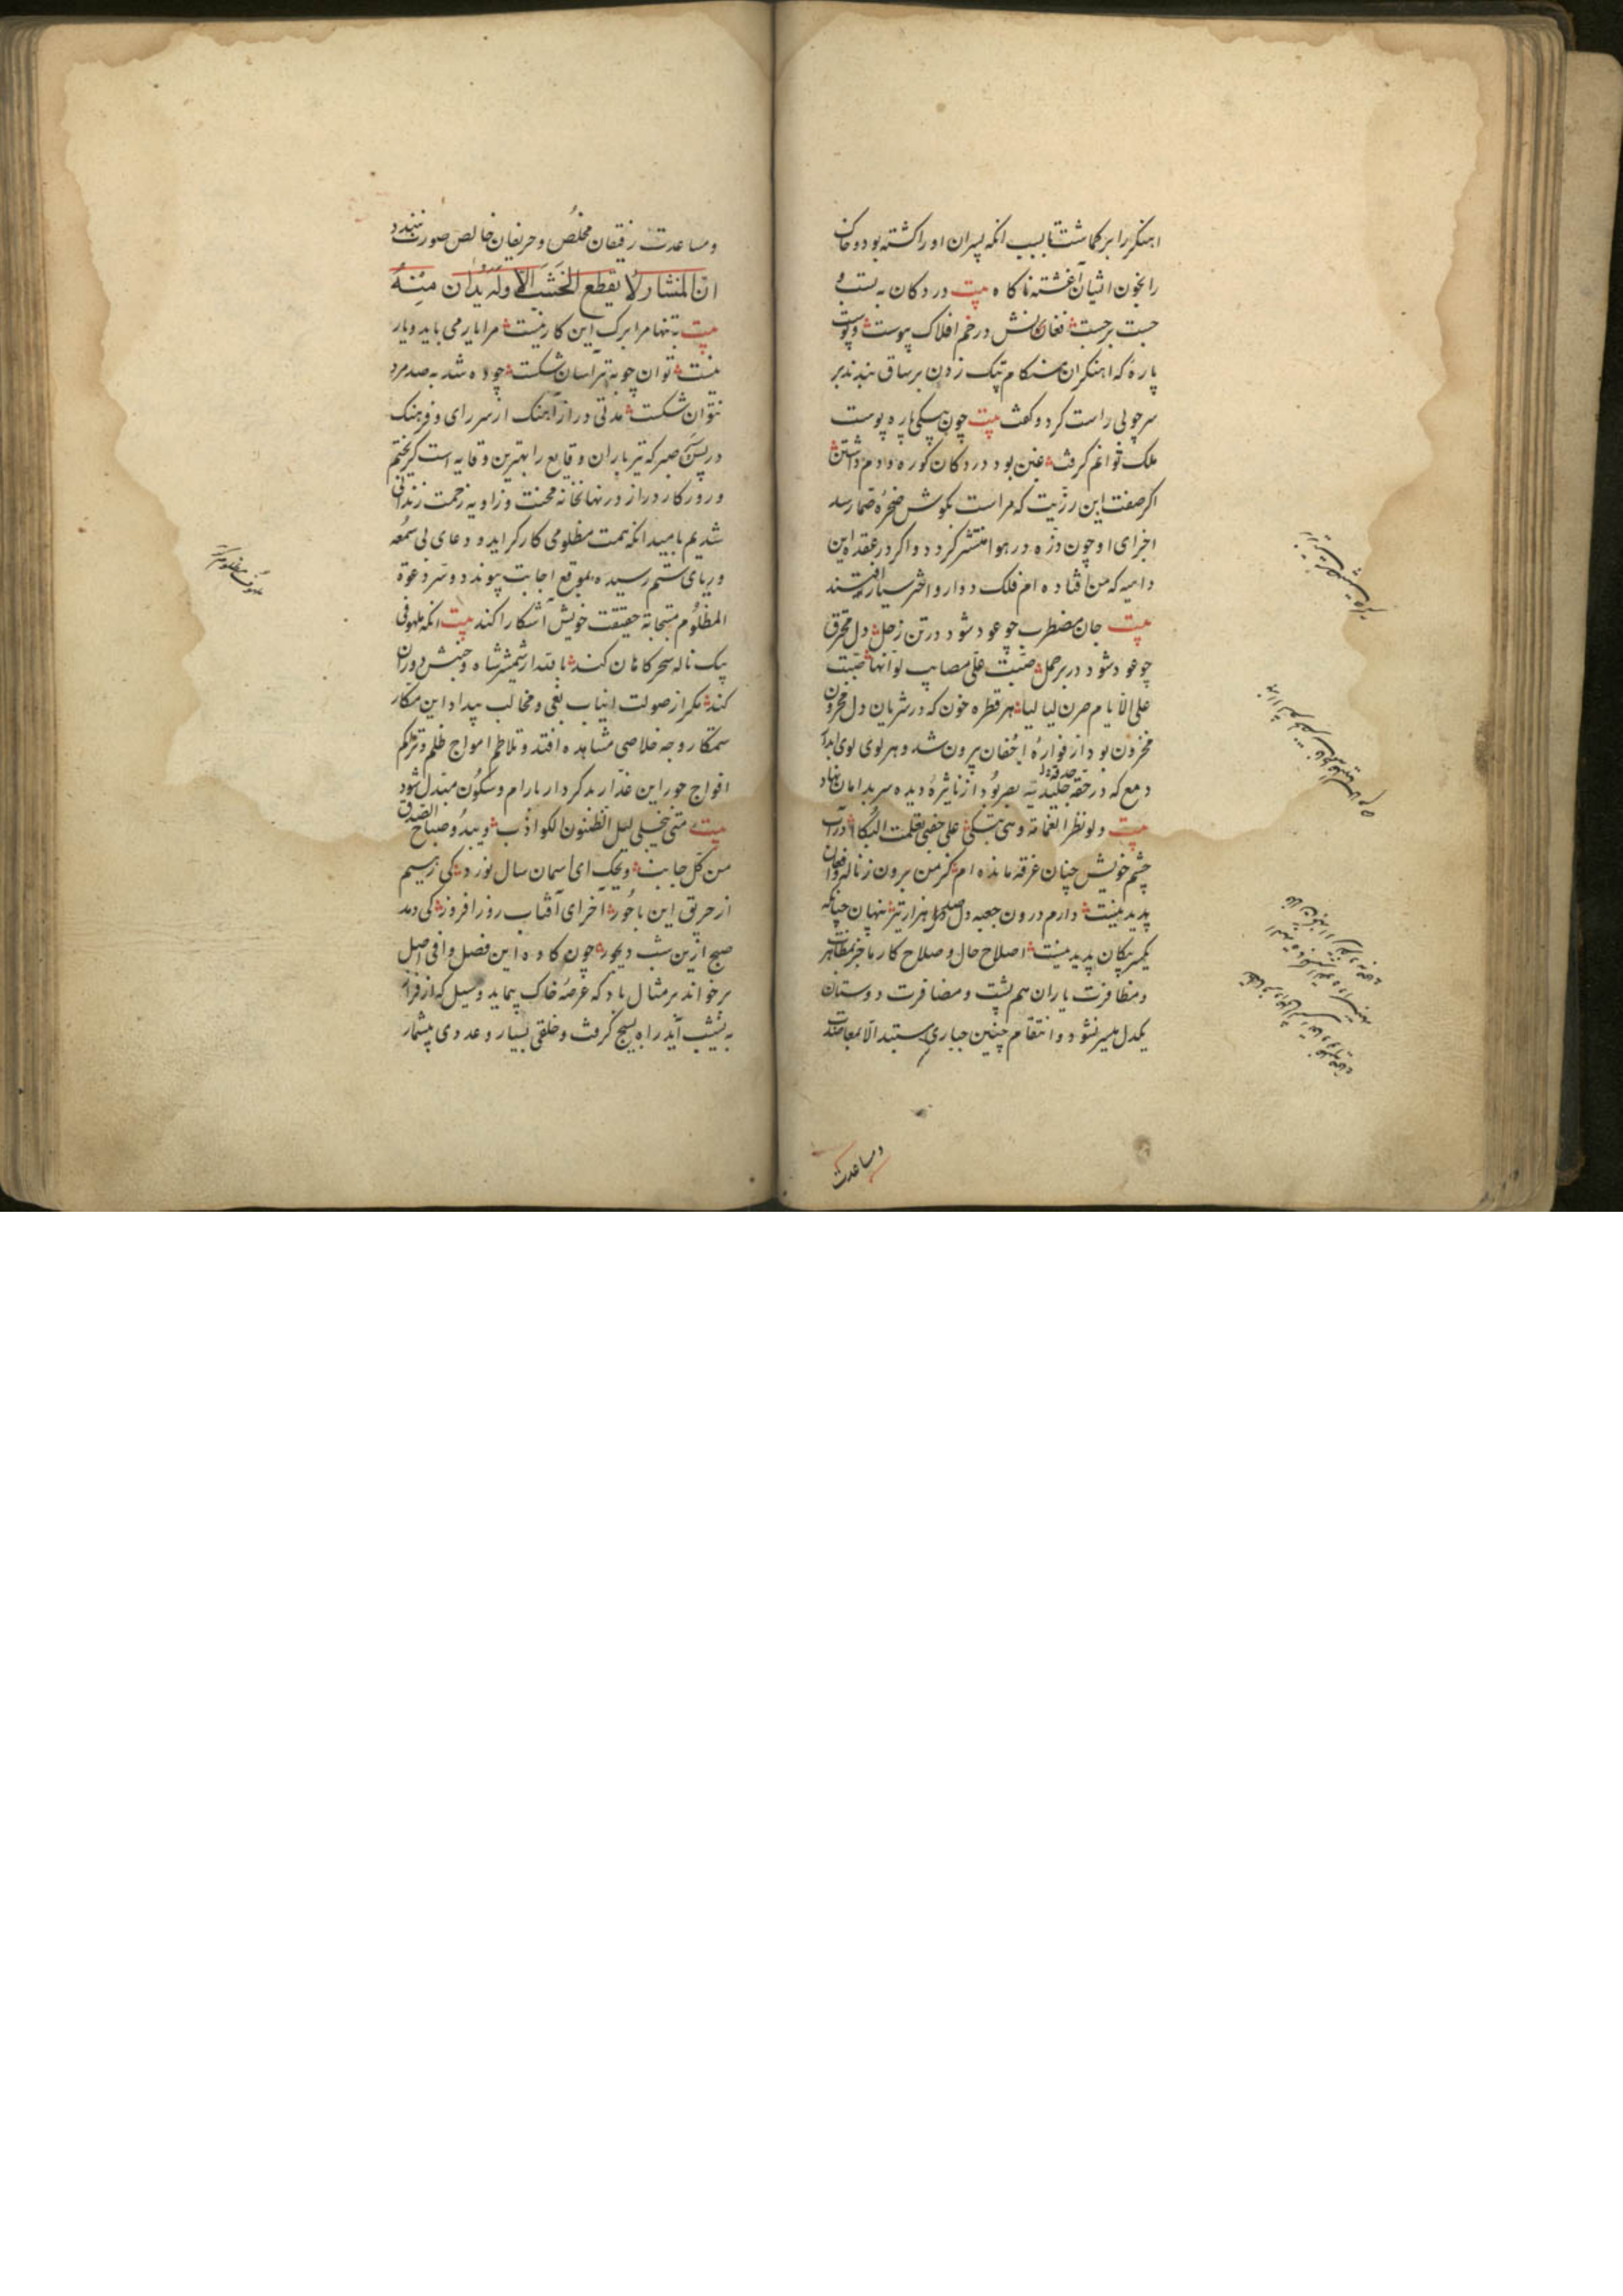 اهنکر را بر کماشت تا بسبب انکه پسران او را کشته بود و خاک
را بخون ایشان آغشته ناکاه بیت در دکان به بست و
جست برجست فغانش در خم افلاک پیوست و پوست
پارهٔ که اهنکران هنکام تپک زدن بر ساق بندند بر
سر چوبی راست کرد و کفت بیت چون بیکی پاره پوست
ملک توانم کرفت غبن بود در دکان کوره و دم داشتن
اکر صفت این رزیت که مراست بکوش صخرهٔ صما رسد
اجزای او چون ذره در هوا منتشر کردد و اکر در عقده این
داهیه که من افتاده ام فلک دوار و اختر سیار افتند
بیت جان مضطرب چو عود شود در تن زحل دل محترق
چو عود شود در بر حمل صبّت علیّ مصایب لو انها صبّت
علی الایام صرن لیالیا هر قطره خون که در شریان دل محزون
مخزون بود از فوارهٔ اجفان بیرون شد و هر لوی لوی ابدار
دمع که در حقه جلیدیه بصر بود از نایژهٔ دیده سر بدامان نهاد
بیت ولو نظر الغمامة وهی تبکی علی جفنی تعلمت البکا در آب
چشم خویش چنان غرقه مانده ام کز من برون ز ناله و افغان
پدید نیست دارم درون جعبه دل هزار تیر پنهان چنانکه
یکسر پیکان پدید نیست اصلاح حال و صلاح کار ما جز بمظاهر
و مظافرت یاران هم پشت و مضافرت دوستان
یکدل میسر نشود و انتقام چنین جباری مستبد الا بمعاضدت
و مساعدت
و مساعدت رفیقان مخلص و حریفان خالص صورت نبندد
انّ المنشار لا یقطع الخشب الا وله یدان منه
بیت به تنها مرا برک این کار نیست مرا یار می باید و یار
نیست توان چوبه تیر آسان شکست چو ده شد به صد مرد
نتوان شکست مدتی دراز آهنک از سر رای و فرهنک
در پس صبر که تیر باران وقایع را بهترین وقایه است کریختیم
و روزکار دراز در نهانخانه محنت و زاویه زحمت زندانی
شدیم بامید انکه همت مظلومی کارکر اید و دعای بی سمعه
و ریای ستم رسیده بموقع اجابت پیوندد و سر دعوة
المظلوم مستجابة حقیقت خویش آشکارا کند بیت انکه ملهوفی
بیک ناله سحرکاهان کند نابتدار شمشیر شاه و جنبش دوران
کند مکر از صولت انیاب بغی و مخالب بیداد این مکار
ستمکار وجه خلاصی مشاهده افتد و تلاطم امواج ظلم و تراکم
افواج جور این غدار بد کردار بارام و سکون مبتدل شود
بیت متی ینجلی لیل الظنون الکواذب ویبدو صباح الصدق
من کل جانب ویحک ای اسمان سال نورد کی رسیم
از حریق این باحور آخر ای آفتاب روز افروز کی دمد
صبح ازین شب دیجور چون کاوه این فصل وافی اصل
بر خواند بر مثال باد که عرصهٔ خاک پیماید و سیل که از فراز
به نشیب آید راه بسیج کرفت و خلقی بسیار و عددی بیشمار